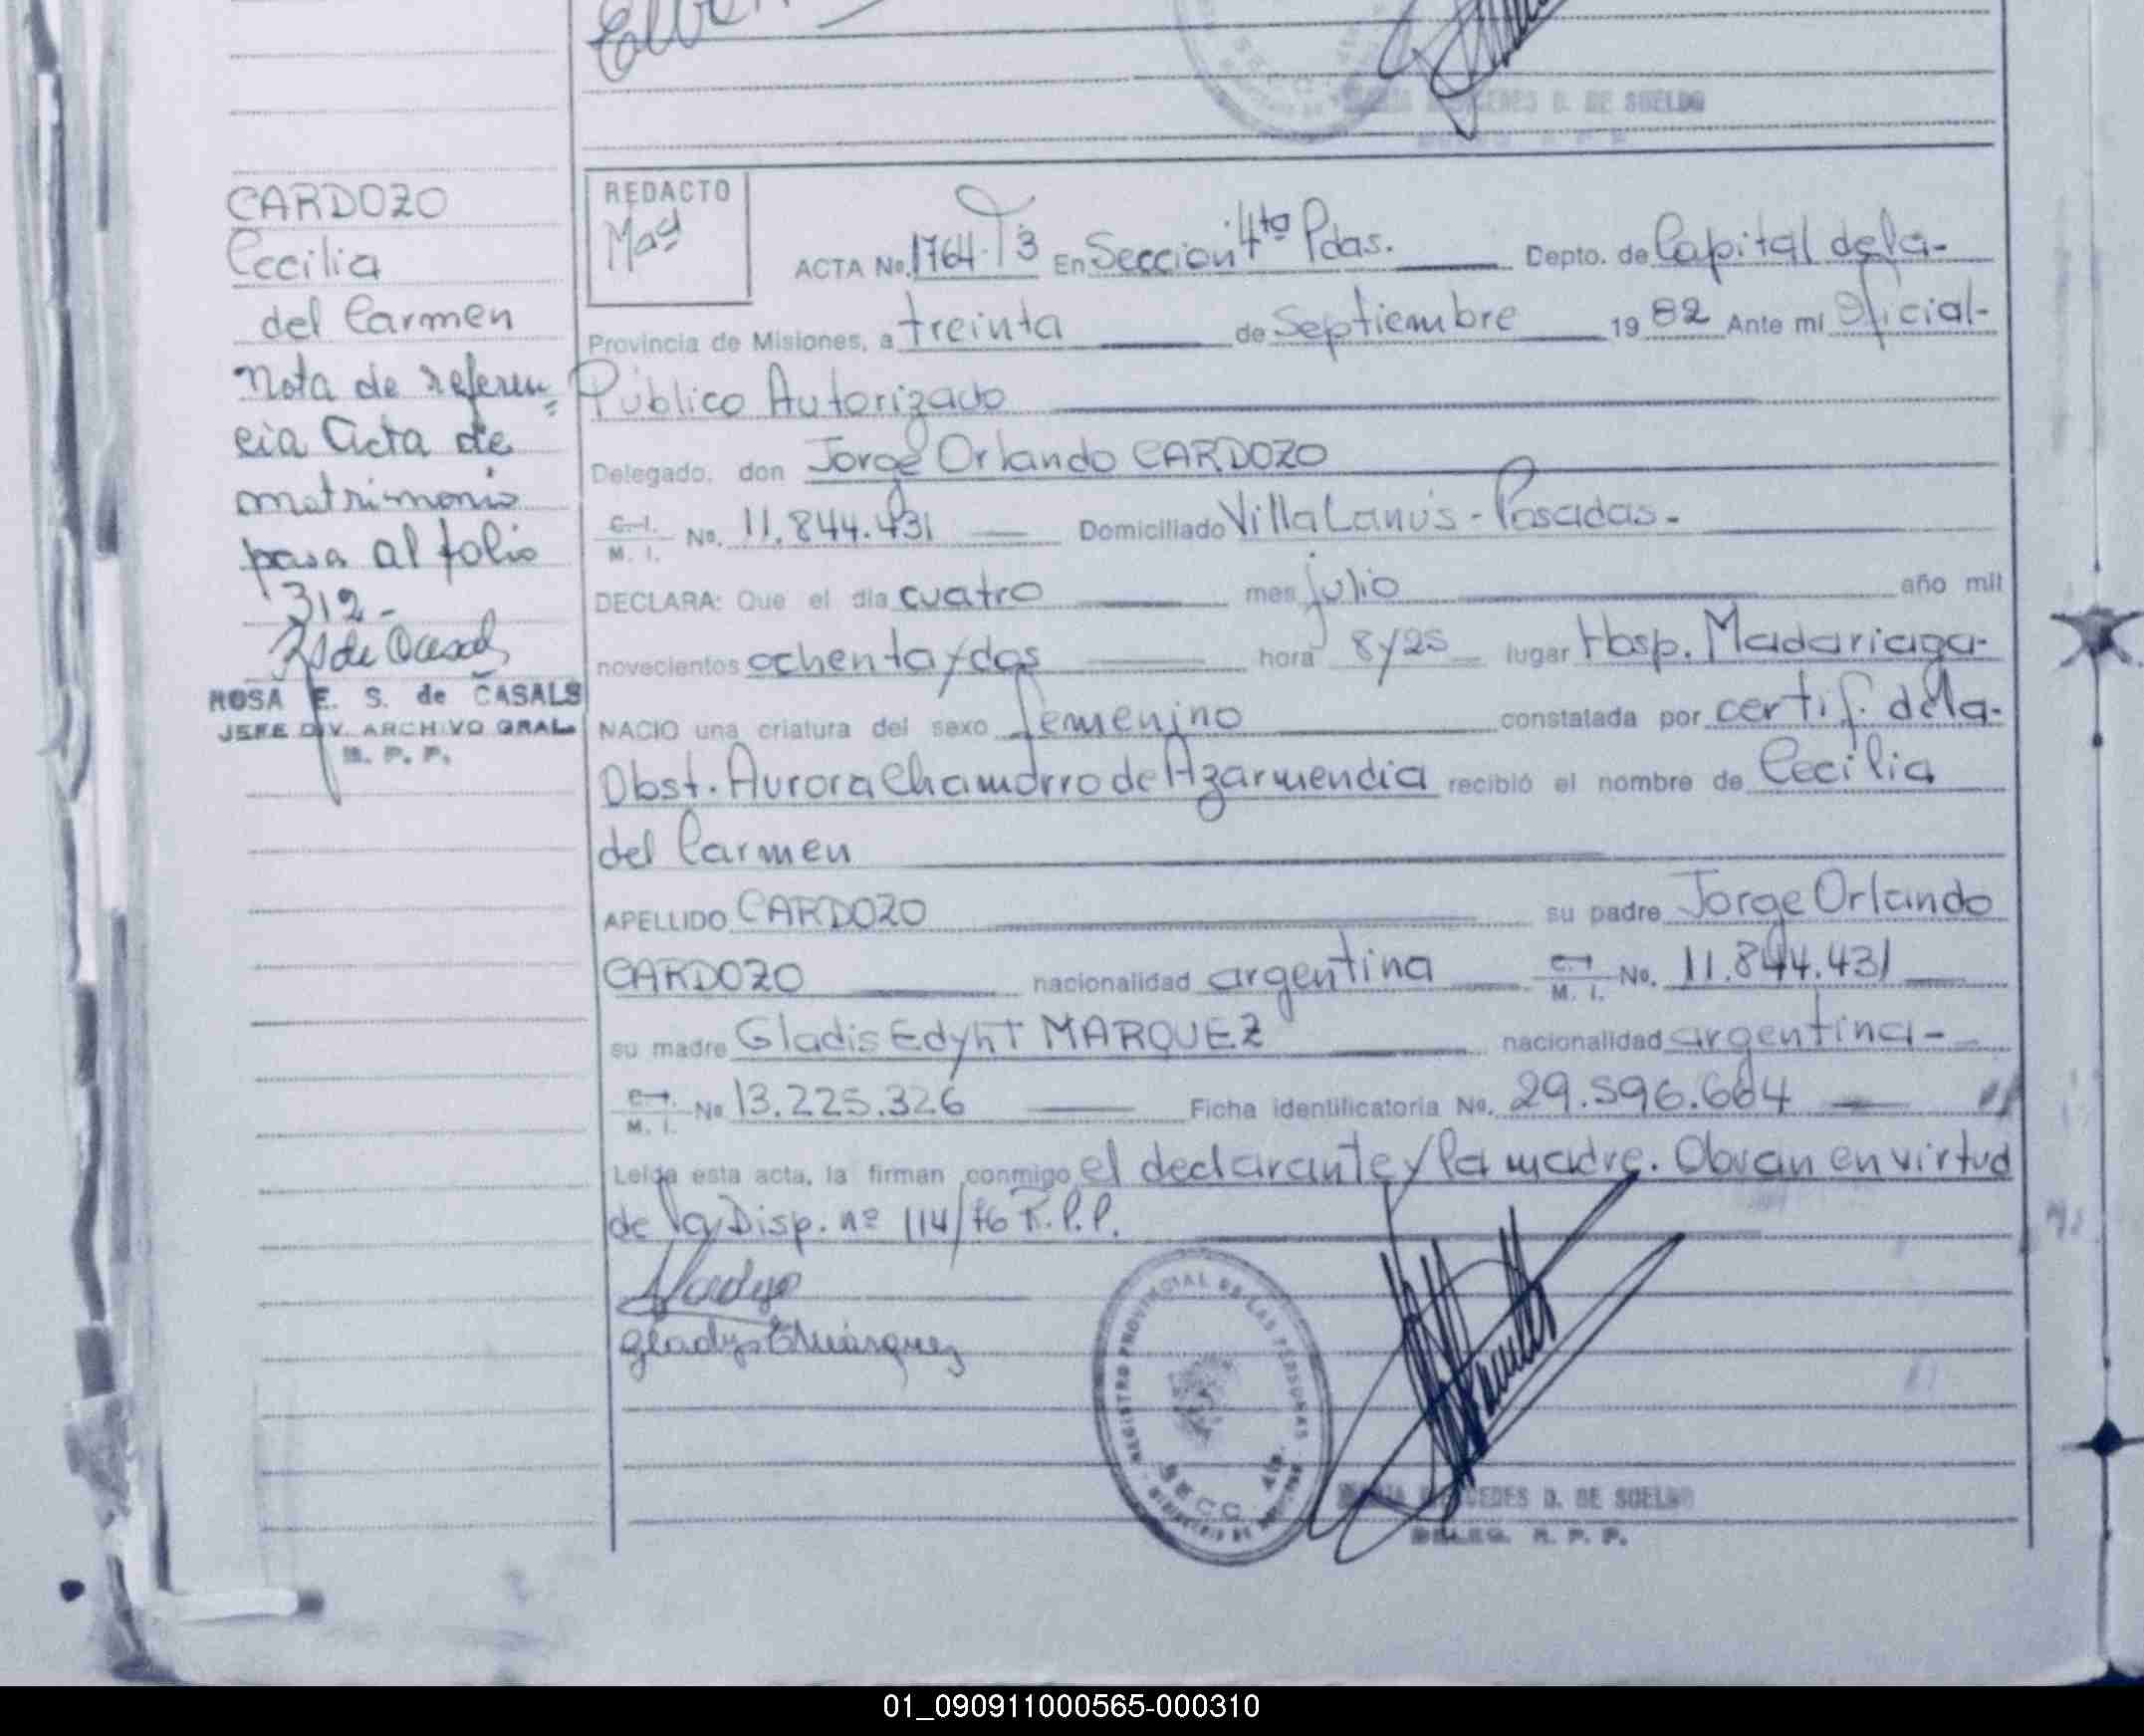 MARIA MERCEDES D. DE SUELDO
CARDOZO
Cecilia
del Carmen
Nota de referen=
cia Acta de
matrimonio
pasa al folio
312-
ROSA E. S. de CASALS
JEFE DIV. ARCHIVO GRAL.
R. P. P.
REDACTO
ACTA No. 1764 T3 En Sección 4ta Pdas. Depto. de Capital de la-
Provincia de Misiones, a treinta de Septiembre 19 82 Ante mi Oficial-
Público Autorizado
Delegado, don Jorge Orlando CARDOZO
C. I. M. I. No. 11.844.431 Domiciliado Villa Lanús - Posadas.-
DECLARA: Que el dia cuatro mes julio año mil
novecientos ochenta y dos hora 8 y 25 lugar Hosp. Madariaga-
NACIO una criatura del sexo femenino constatada por certif. de la-
Obst. Aurora Chamorro de Azarmendia recibió el nombre de Cecilia
del Carmen
APELLIDO CARDOZO su padre Jorge Orlando
CARDOZO nacionalidad argentina C. I. M. I. No. 11.844.431
su madre Gladis Edyht MARQUEZ nacionalidad argentina-
C. I. M. I. No 13.225.326 Ficha identificatoria No. 29.596.664
Leida esta acta, la firman conmigo el declarante y la madre. Obran en virtud
de la Disp. nº 114/76 R.P.P.
Gladys E Márquez
REGISTRO PROVINCIAL DE LAS PERSONAS
SECC. 4ta.
MARIA MERCEDES D. DE SUELDO
DELEG. R. P. P.
01_090911000565-000310